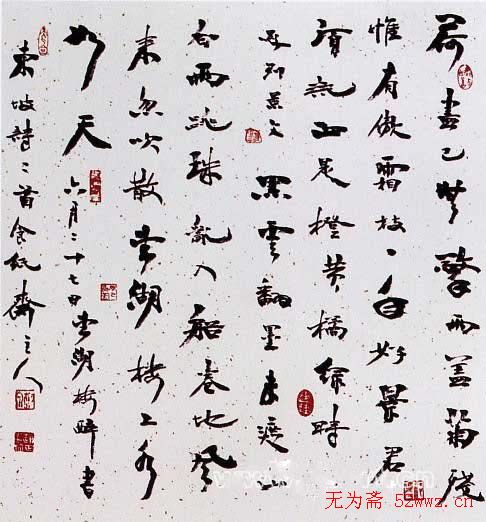 荷盡已無擎雨蓋菊殘
惟有傲霜枝一年好景君
須記正是橙黃橘綠時
贈劉景文 黑雲翻墨未遮山
白雨跳珠亂入船卷地風
來忽吹散望湖樓下水
如天 六月二十七日望湖樓醉書
東坡詩二首食紙齋主人
无为斋 52wwz.cn